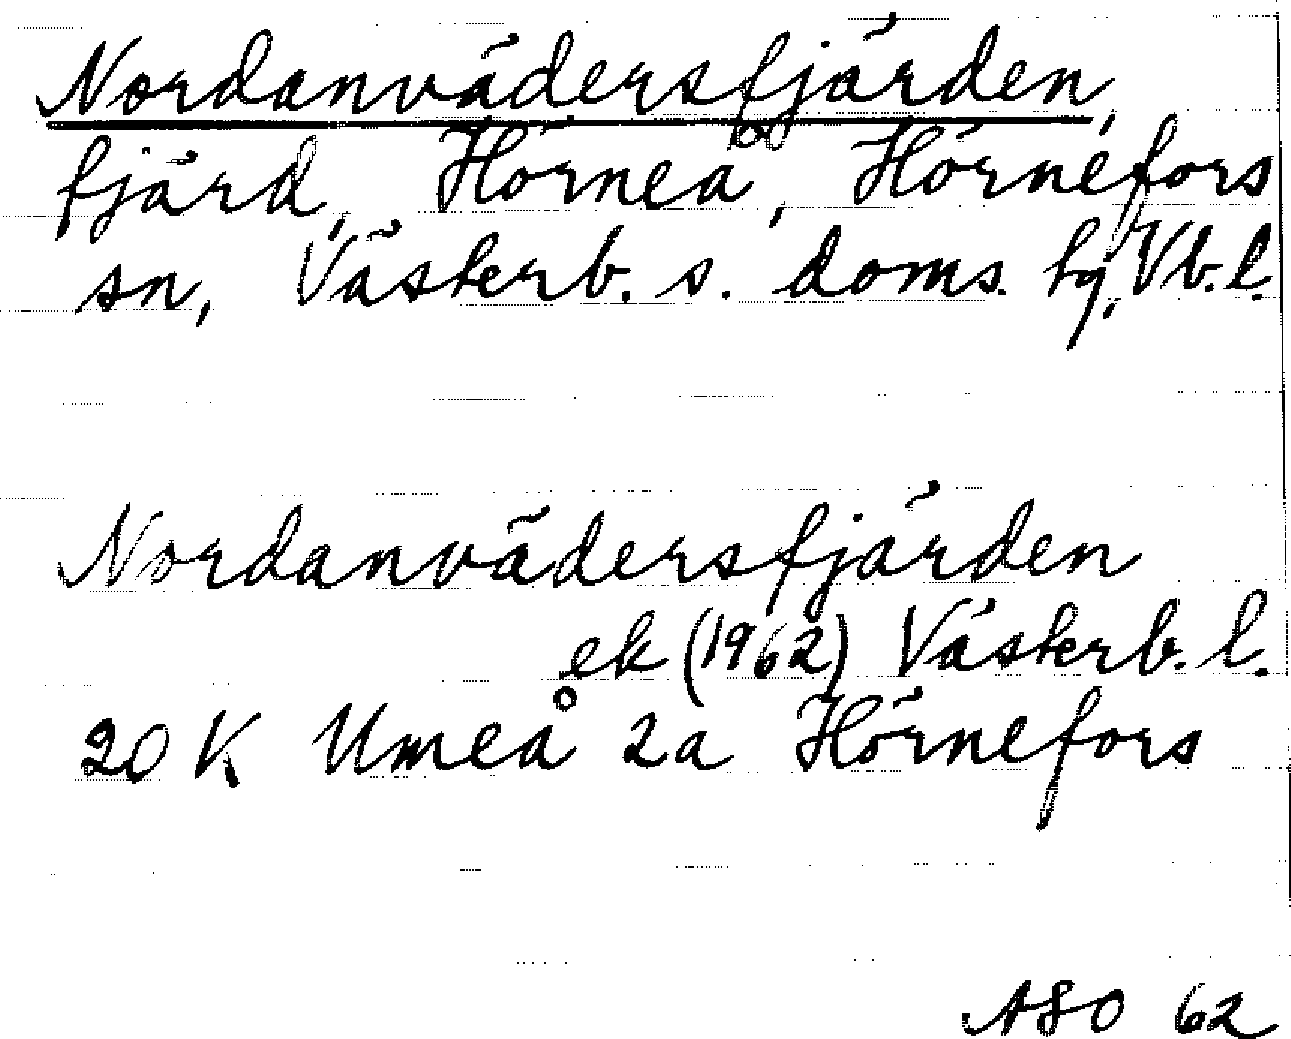 Nordanvädersfjärden,
fjärd, Hörneå, Hörnefors
sn, Västerb. s. doms. hg, Vb. l.
Nordanvädersfjärden
ek (1962) Västerb. l.
20 K Umeå 2a Hörnefors
ASO 62